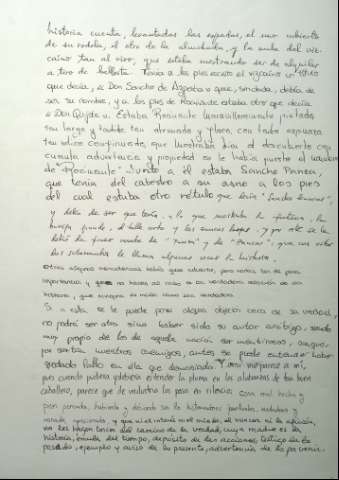 historia cuenta, levantadas las espadas, el uno cubierto
de su rodela, el otro de la almohada, y la mula del viz-
caíno tan al vivo, que estaba mostrando ser de alquiler
a tiro de ballesta. Tenía a los pies escrito el vizcaíno un título
que decía, a Don Sancho de Azpeitia o que, sin duda, debía de
ser su nombre, y a los pies de Rocinante estaba otro que decía
a Don Quijote. Estaba Rocinante maravillosamente pintado
tan largo y tendido tan atenuado y flaco, con tanto espinazo
tan ético confirmado, que mostraba bien al descubierto con
cuanta advertencia y propiedad se le había puesto el nombre
de "Rocinante". Junto a él estaba Sancho Panza,
que tenía del cabestro a su asno a los pies
del cual estaba otro rétulo que decía "Sancho Zancas",
y debía de ser que tenía, a lo que mostraba la pintura, la
barriga grande, el talle corto y las zancas largas, y por esto se le
debió de poner nombre de "Panza" y de "Zancas", que con estos
dos sobrenombres le llama algunas veces la historia.
Otras algunas menudencias había que advertir, pero todas son de poca
importancia y que no hacen al caso a la verdadera relación de la
historia, que ninguna es mala como sea verdadera.
Si a esta se le puede poner alguna objeción cerca de su verdad,
no podrá ser otra sino haber sido su autor arábigo, siendo
muy propio de los de aquella nación ser mentirosos, aunque,
por ser tan nuestros enemigos, antes se puede entender haber
quedado falto en ella que demasiado. Y así me parece a mí,
pues cuando pudiera y debiera extender la pluma en las alabanzas de tan buen
caballero, parece que de industria las pasa en silencio: cosa mal hecha y
peor pensada, habiendo y debiendo ser los historiadores puntuales, verdaderos y
nonada apasionados, y que ni el interés ni el miedo, el rancor ni la afición,
no les hagan torcer del camino de la verdad, cuya madre es la
historia, émula del tiempo, depósito de las acciones, testigo de lo
pasado, ejemplo y aviso de lo presente, advertencia de lo por venir.